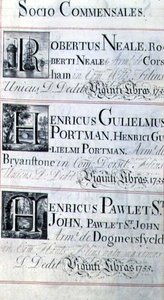 SOCIO COMMENSALES.
ROBERTUS NEALE, RO-
BERTI NEALE Arm. de Cors
ham in Com.
Unicus, D. Dedit Viginti Libras. 175
HENRICUS GULIELMUS
PORTMAN, HENRICI GU
LIELMI PORTMAN, Arm. de
Bryanstone in Com. Dorset
Unicus D. Dedit Viginti Libras. 175
HENRICUS PAWLET ST.
JOHN, PAWLET ST. JOHN
Arm. de Dogmersfyeld
in Com.
D. Dedit Viginti Libras. 1755.